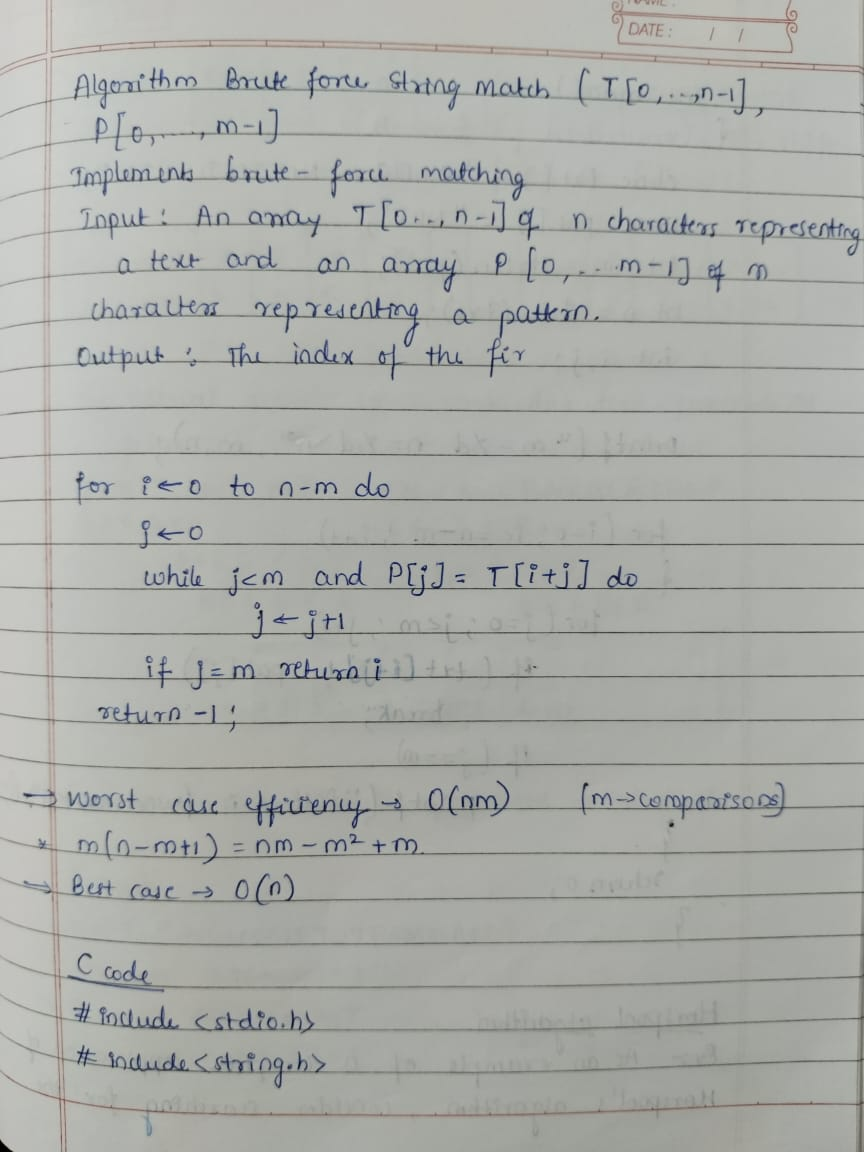 NAME:
DATE: / /
Algorithm Brute force String match (T[0,...,n-1],
P[0,....., m-1]
Implements brute-force matching
Input: An array T[0..., n-1] of n characters representing
a text and an array P[0,...m-1] of m
characters representing a pattern.
Output: The index of the fir
for i←0 to n-m do
j←0
while j<m and P[j] = T[i+j] do
j←j+1
if j=m return i
return -1;
→ Worst case efficiency → O(nm) [m→comparisons]
* m(n-m+1) = nm - m² + m.
→ Best case → O(n)
C code
# include <stdio.h>
# include <string.h>